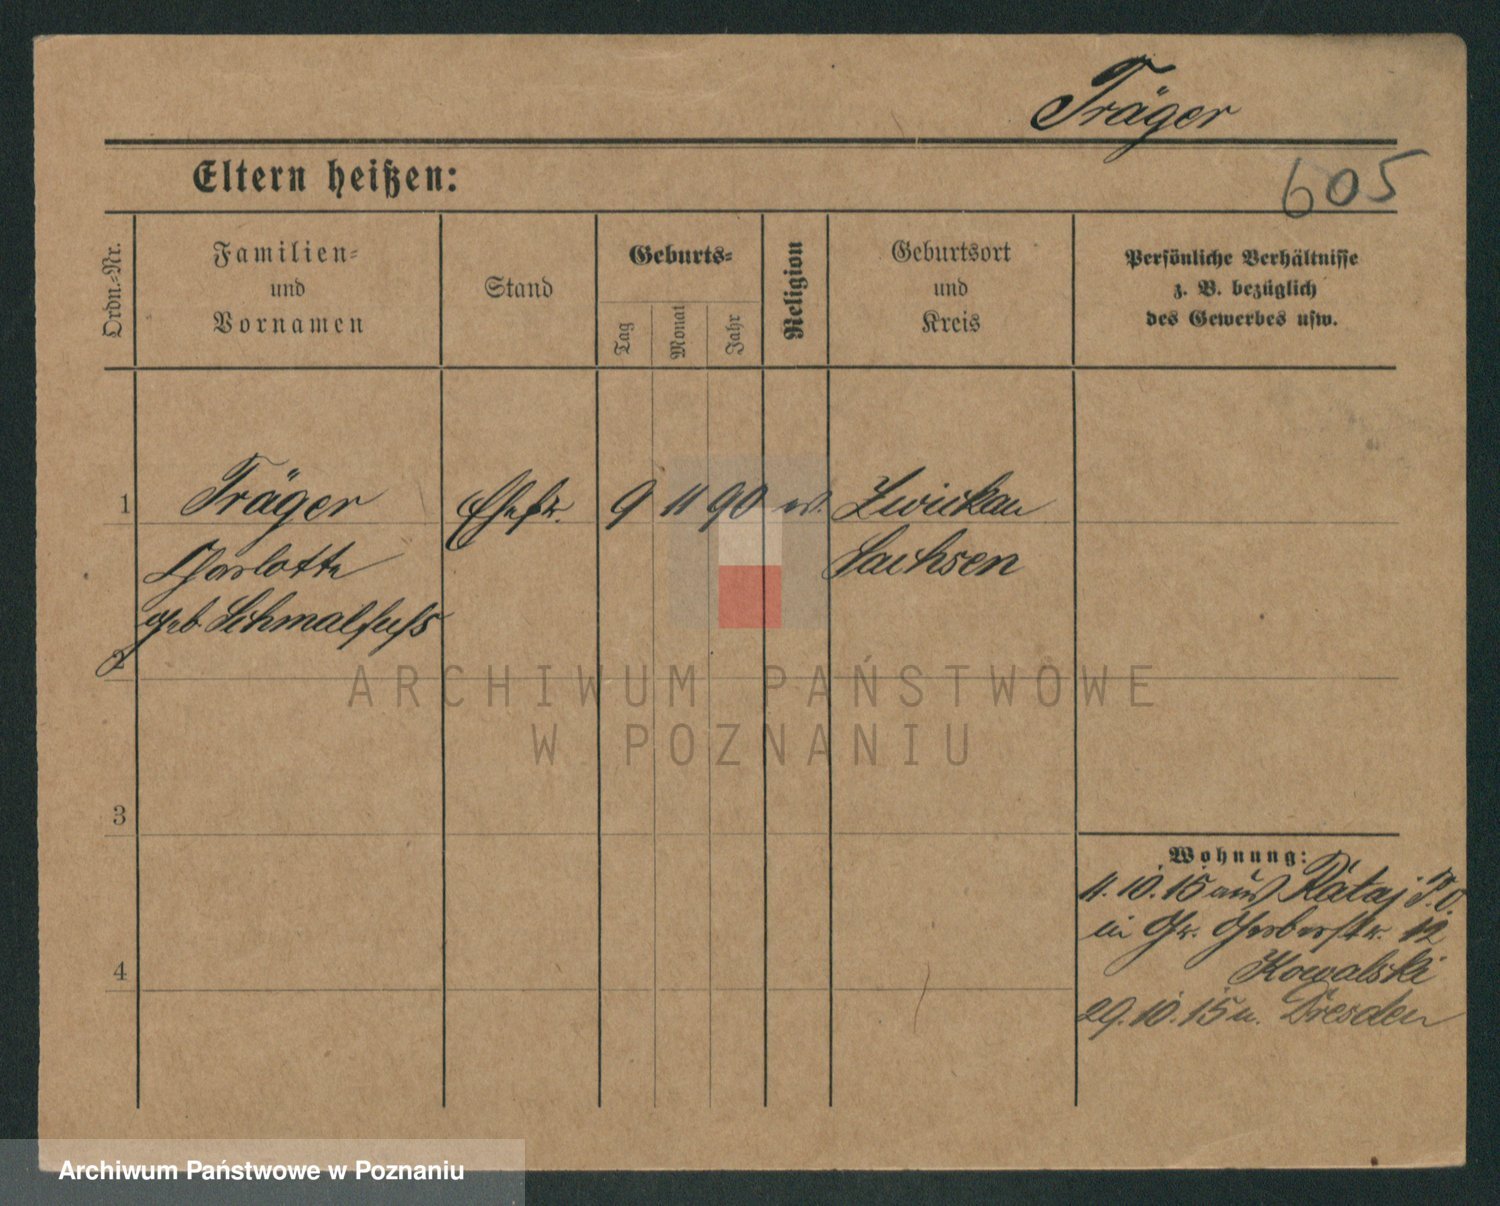 Träger
605
Eltern heißen:
Ordn.-Nr.
Familien-
und
Vornamen
Stand
Geburts-
Tag
Monat
Jahr
Religion
Geburtsort
und
Kreis
Persönliche Verhältnisse
z. B. bezüglich
des Gewerbes usw.
1 Träger Ehefr. 9 11 90 ev. Zwickau
Charlotte Sachsen
geb Schmalfuss
2
3
4
Wohnung:
11.10.15 aus Rataj P.O.
in Gr. Gerberstr. 12
Kowalski
29.10.15 n. Dresden
ARCHIWUM PAŃSTWOWE
W POZNANIU
Archiwum Państwowe w Poznaniu